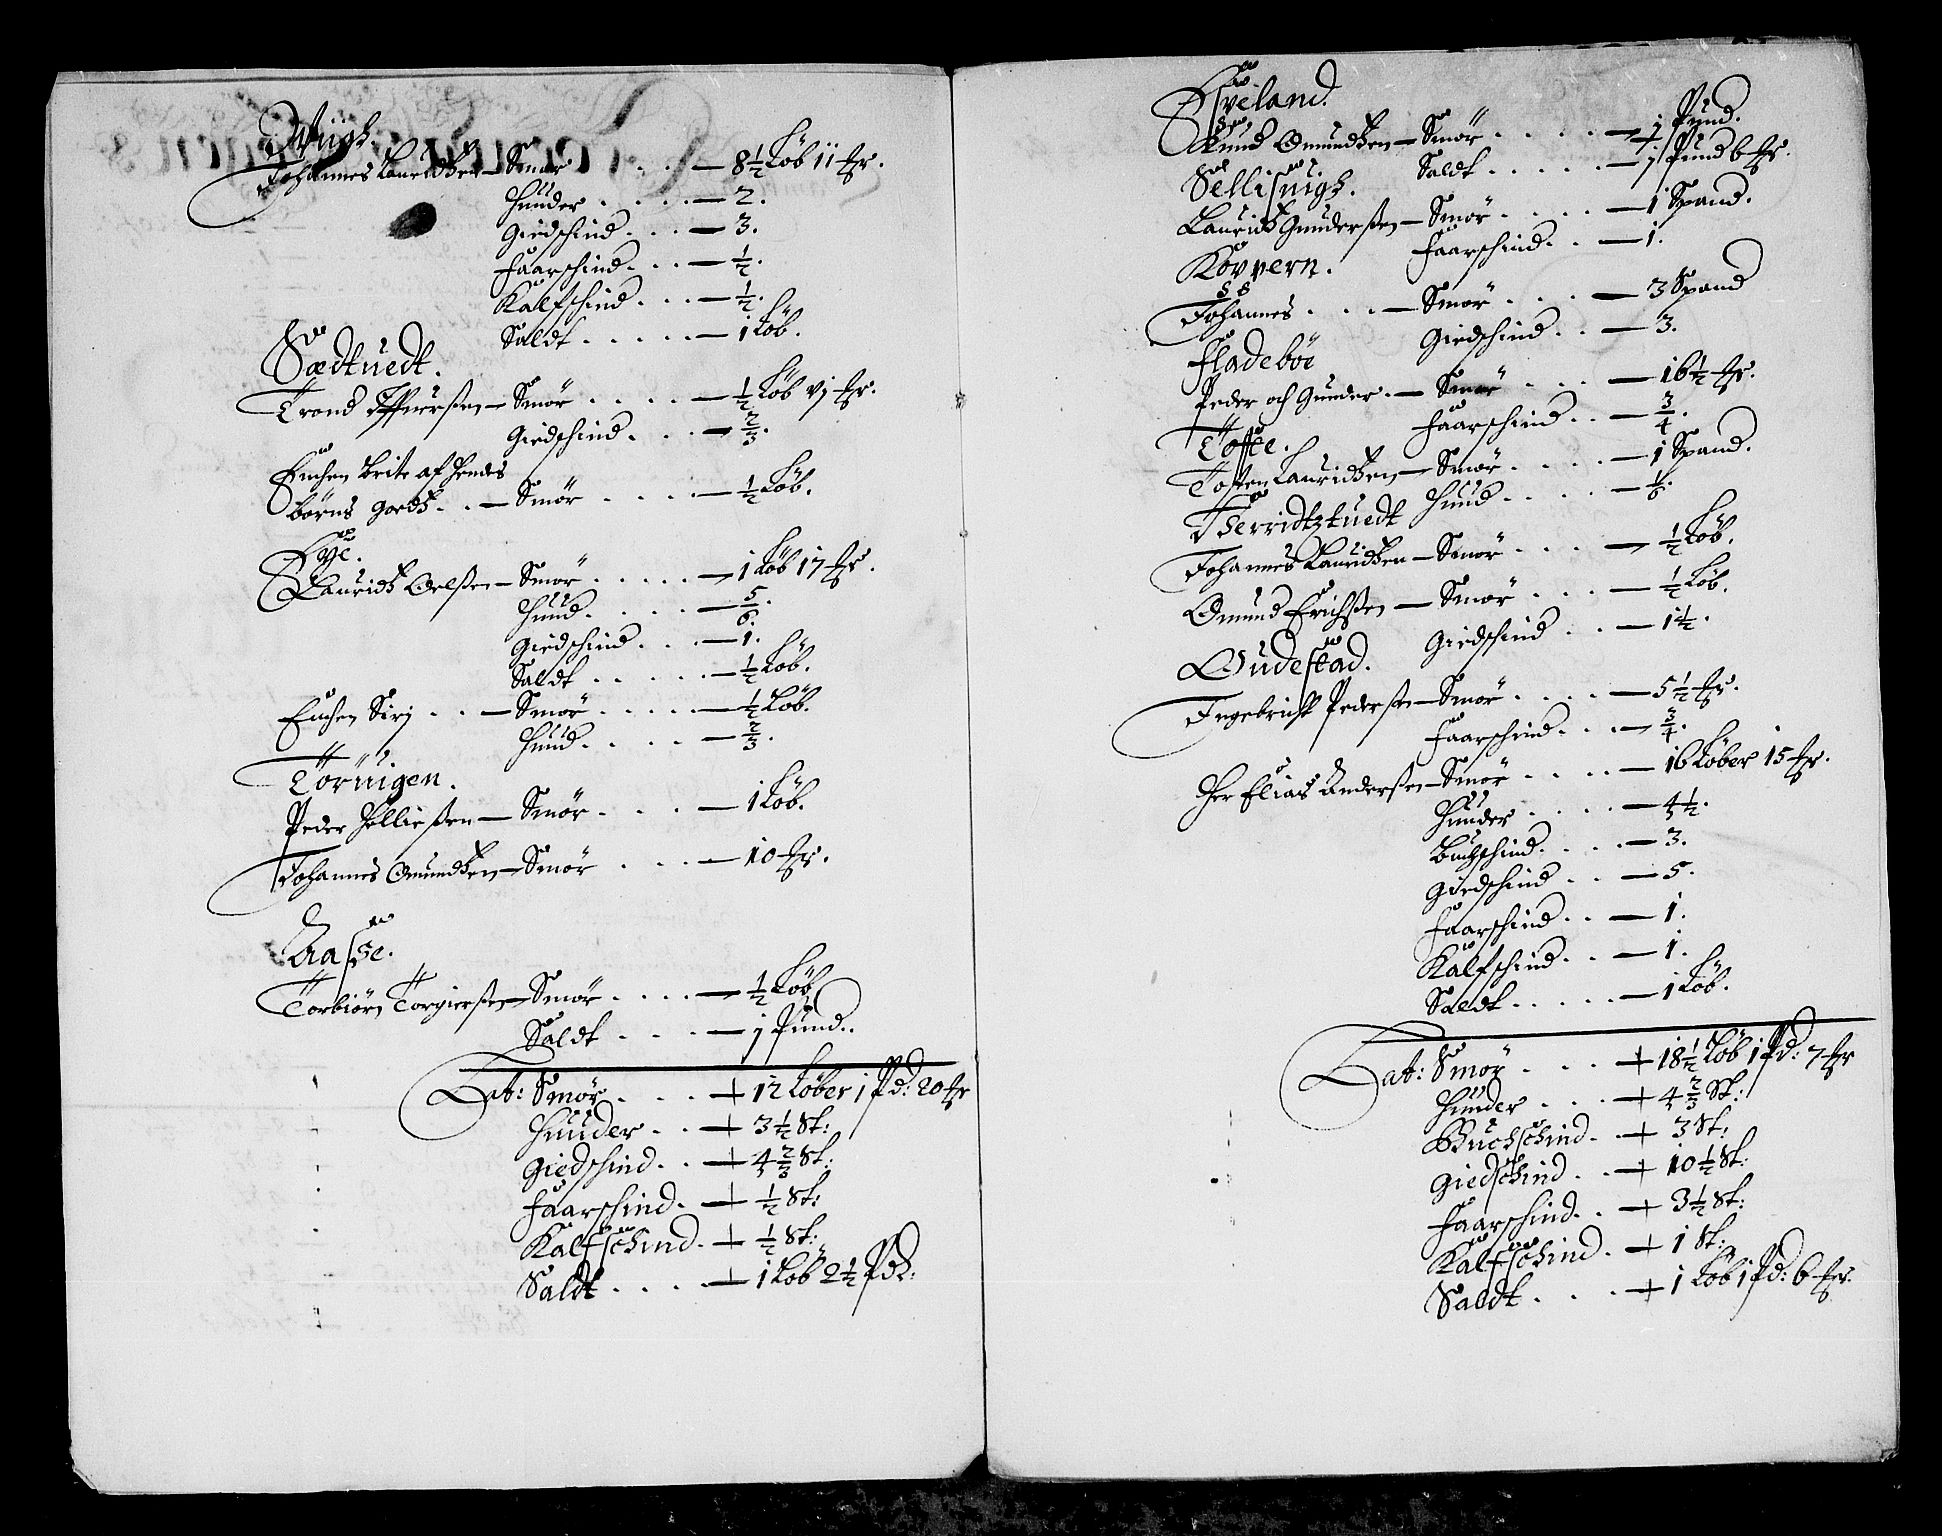 Wiigh.
Johannes Lauridtzen — Smør . . . — 8½ Løb 11 £r.
Huuder . . . . — 2.
Giedschind . . . — 3.
Faarschind . . . — ½.
Kalfschind . . . — ½.
Saldt . . . . . — 1 Løb.
Sædtuedt.
Trond Iffuerßen — Smør . . . . — ½ Løb vj £r.
Giedschind . . . — 2/3.
Enchen Brite af hendes
børns godtz . . — Smør . . . . — ½ Løb.
Øye.
Lauridtz Oelßen — Smør . . . . . — 1 Løb 17 £r.
Huud . . . . — 5/6.
Giedschind . . . — 1.
Saldt . . . . . — ½ Løb.
Enchen Sirj . . — Smør . . . . . — ½ Løb.
Huud . . . . — 2/3.
Törüigen.
Peder Helließen — Smør . . . . — 1 Løb.
Johannes Omundtzen — Smør . . . . — 10 £r.
Aaße.
Torbiörn Torgierßen — Smør . . . . — ½ Løb
Saldt . . . . — j Pund.
Lat: Smør . . . . + 12 Løber 1 Pd: 20 £r
Huuder . . + 3½ St:
Giedschind . . + 4 2/3 St:
Faarschind . + ½ St:
Kalfschind . + ½ St:
Saldt . . . . + 1 Løb 2½ Pd:
Qveland.
Knud Omundtzen — Smør . . . . — j Pund.
Saldt . . . . . — j Pund 6 £r.
Sellisuigh.
Lauridtz Gunderßen — Smør . . . . — 1 Spand.
Faarschind . . — 1.
Kovvern.
Johannes . . . — Smør . . . . — 3 Spand
Giedschind . . — 3.
Fladebøe
Peder och Gunder . — Smør . . . — 16½ £r.
Faarschind . . — 3/4.
Toffte.
Tosten Lauridtzen — Smør . . . . — 1 Spand.
Huud . . . . — 1/6.
Therridtztuedt
Johannes Lauridtzen — Smør . . . . — ½ Løb.
Omund Erichßen — Smør . . . . — ½ Løb.
Giedschind . . — 1½.
Oudestad.
Ingebricht Pederßen — Smør . . . . — 5½ £r.
Faarschind . . . — 3/4.
Her Elias Anderßen — Smør . . . . — 16 Løber 15 £r.
Huuder . . . . — 4½.
Buchschind . . . . — 3.
Giedschind . . — 5.
Faarschind . . — 1.
Kalfschind . . — 1.
Saldt . . . . . — 1 Løb.
Lat: Smør . . . + 18½ Løb 1 Pd: 7 £r
Huuder . . . + 4 2/3 St:
Buchschind . + 3 St:
Giedschind . . + 10½ St:
Faarschind . . + 3½ St:
Kalfschind . + 1 St:
Saldt . . . + 1 Løb 1 Pd: 6 £r.